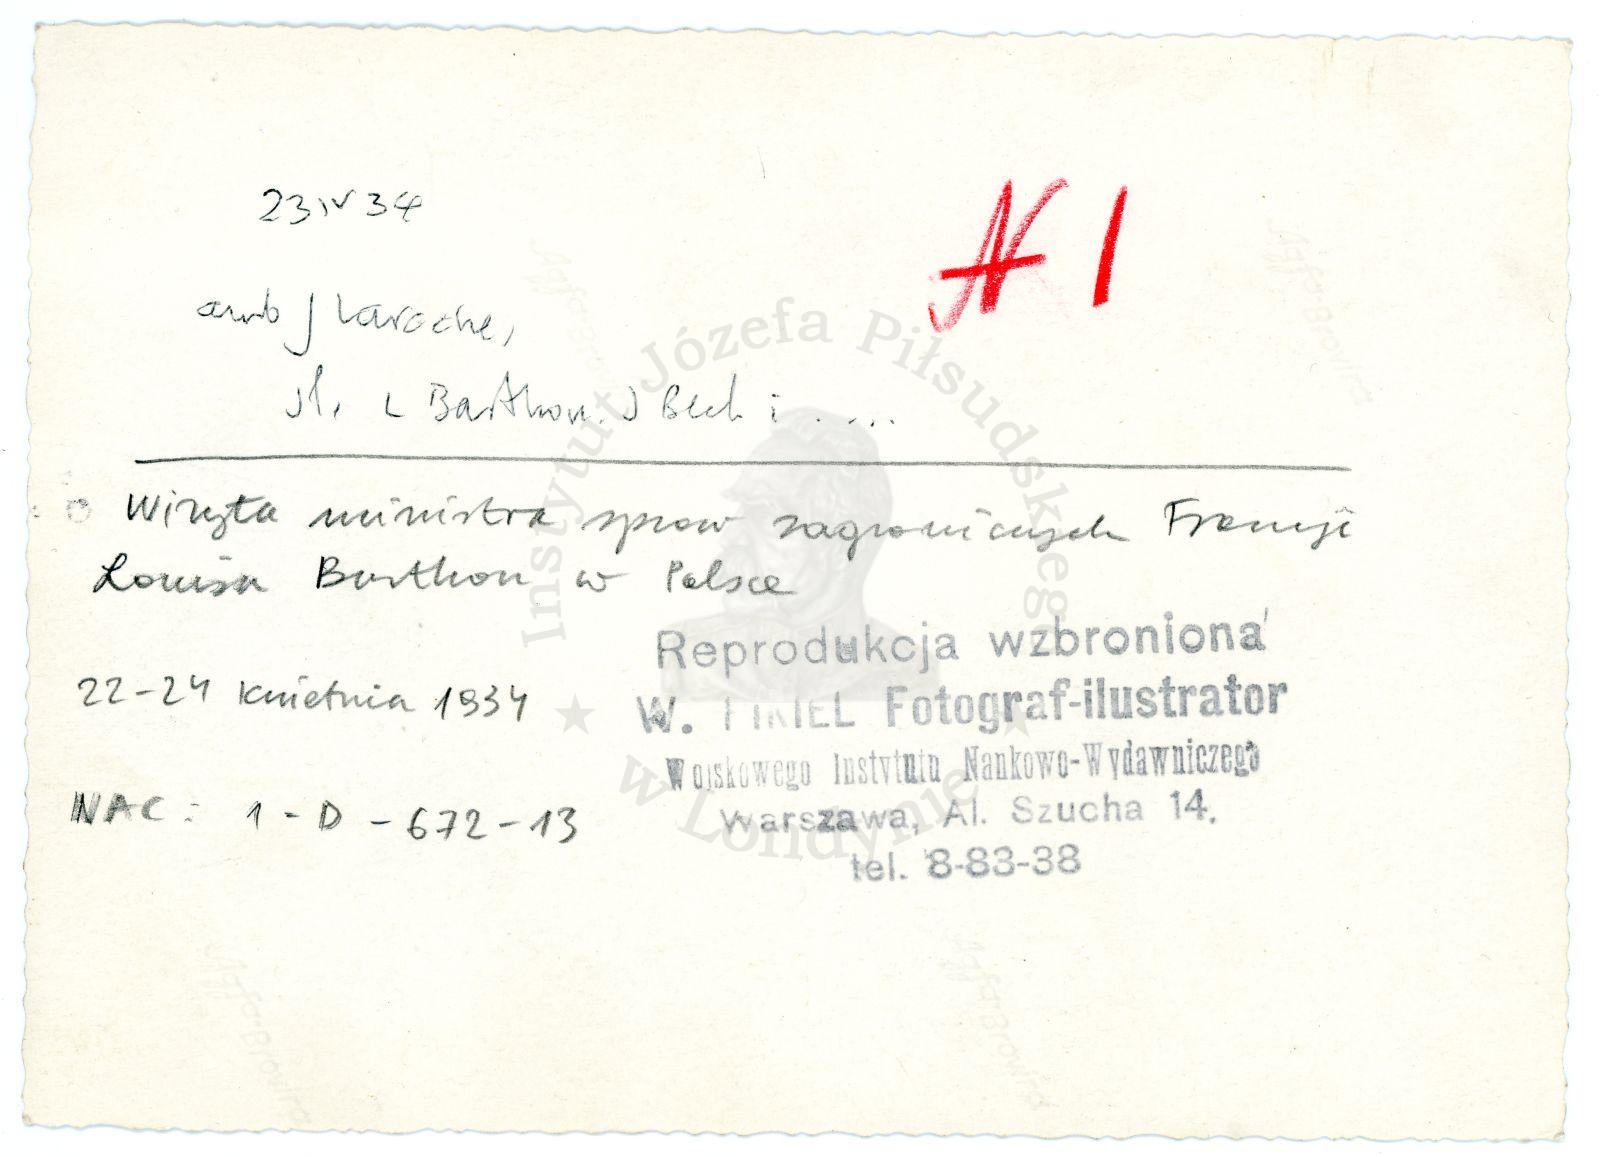 23 IV 34
N 1
amb J Laroche,
L Barthou. J Beck i . ...
Wizyta ministra spraw zagranicznych Francji
Louisa Barthou w Polsce
22-24 kwietnia 1934
NAC: 1-D-672-13
Reprodukcja wzbroniona
W. PIKIEL Fotograf-ilustrator
Wojskowego Instytutu Naukowo-Wydawniczego
Warszawa, Al. Szucha 14.
tel. 8-83-38
Instytut Józefa Piłsudskiego
w Londynie
Agfa-Brovira
Agfa-Brovira
Agfa-Brovira
Agfa-Brovira